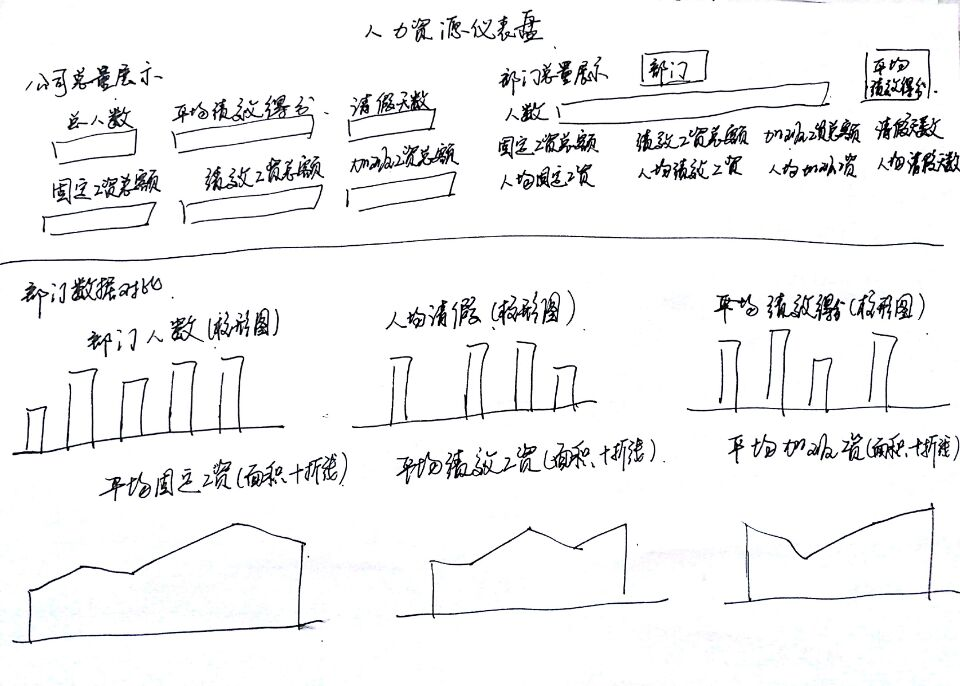 人力资源仪表盘
公司总量展示
总人数 平均绩效得分 请假天数
固定工资总额 绩效工资总额 加班工资总额
部门总量展示 部门 平均绩效得分
人数
固定工资总额 绩效工资总额 加班工资总额 请假天数
人均固定工资 人均绩效工资 人均加班工资 人均请假天数
部门数据对比
部门人数(柱形图) 人均请假(柱形图) 平均绩效得分(柱形图)
平均固定工资(面积+折线) 平均绩效工资(面积+折线) 平均加班工资(面积+折线)